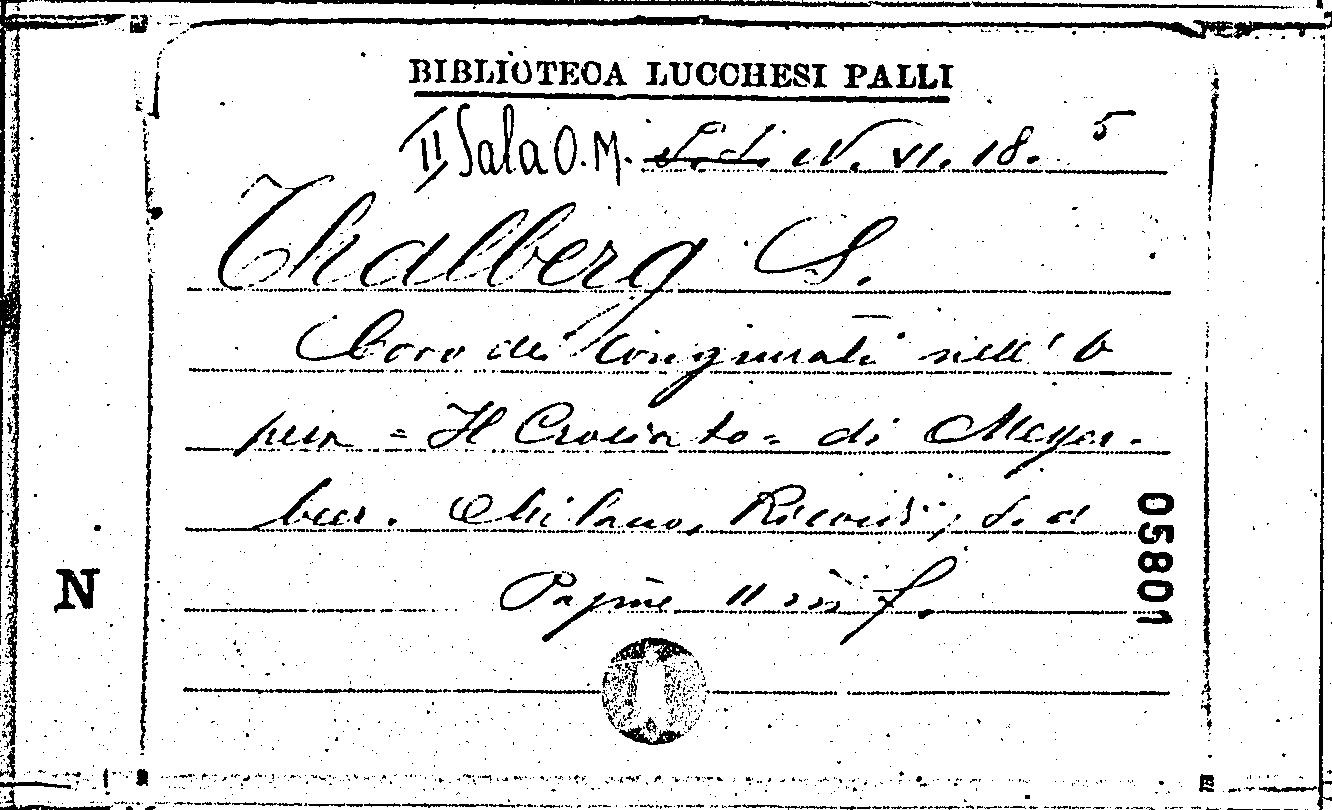 BIBLIOTECA LUCCHESI PALLI
II Sala O.M. N. VI. 18. 5
Thalberg S.
Coro dei Congiurati nell' O
pera = Il Crociato = di Meyer-
beer. Milano, Ricordi, s. a
Pagine 11 in f.
N
05801